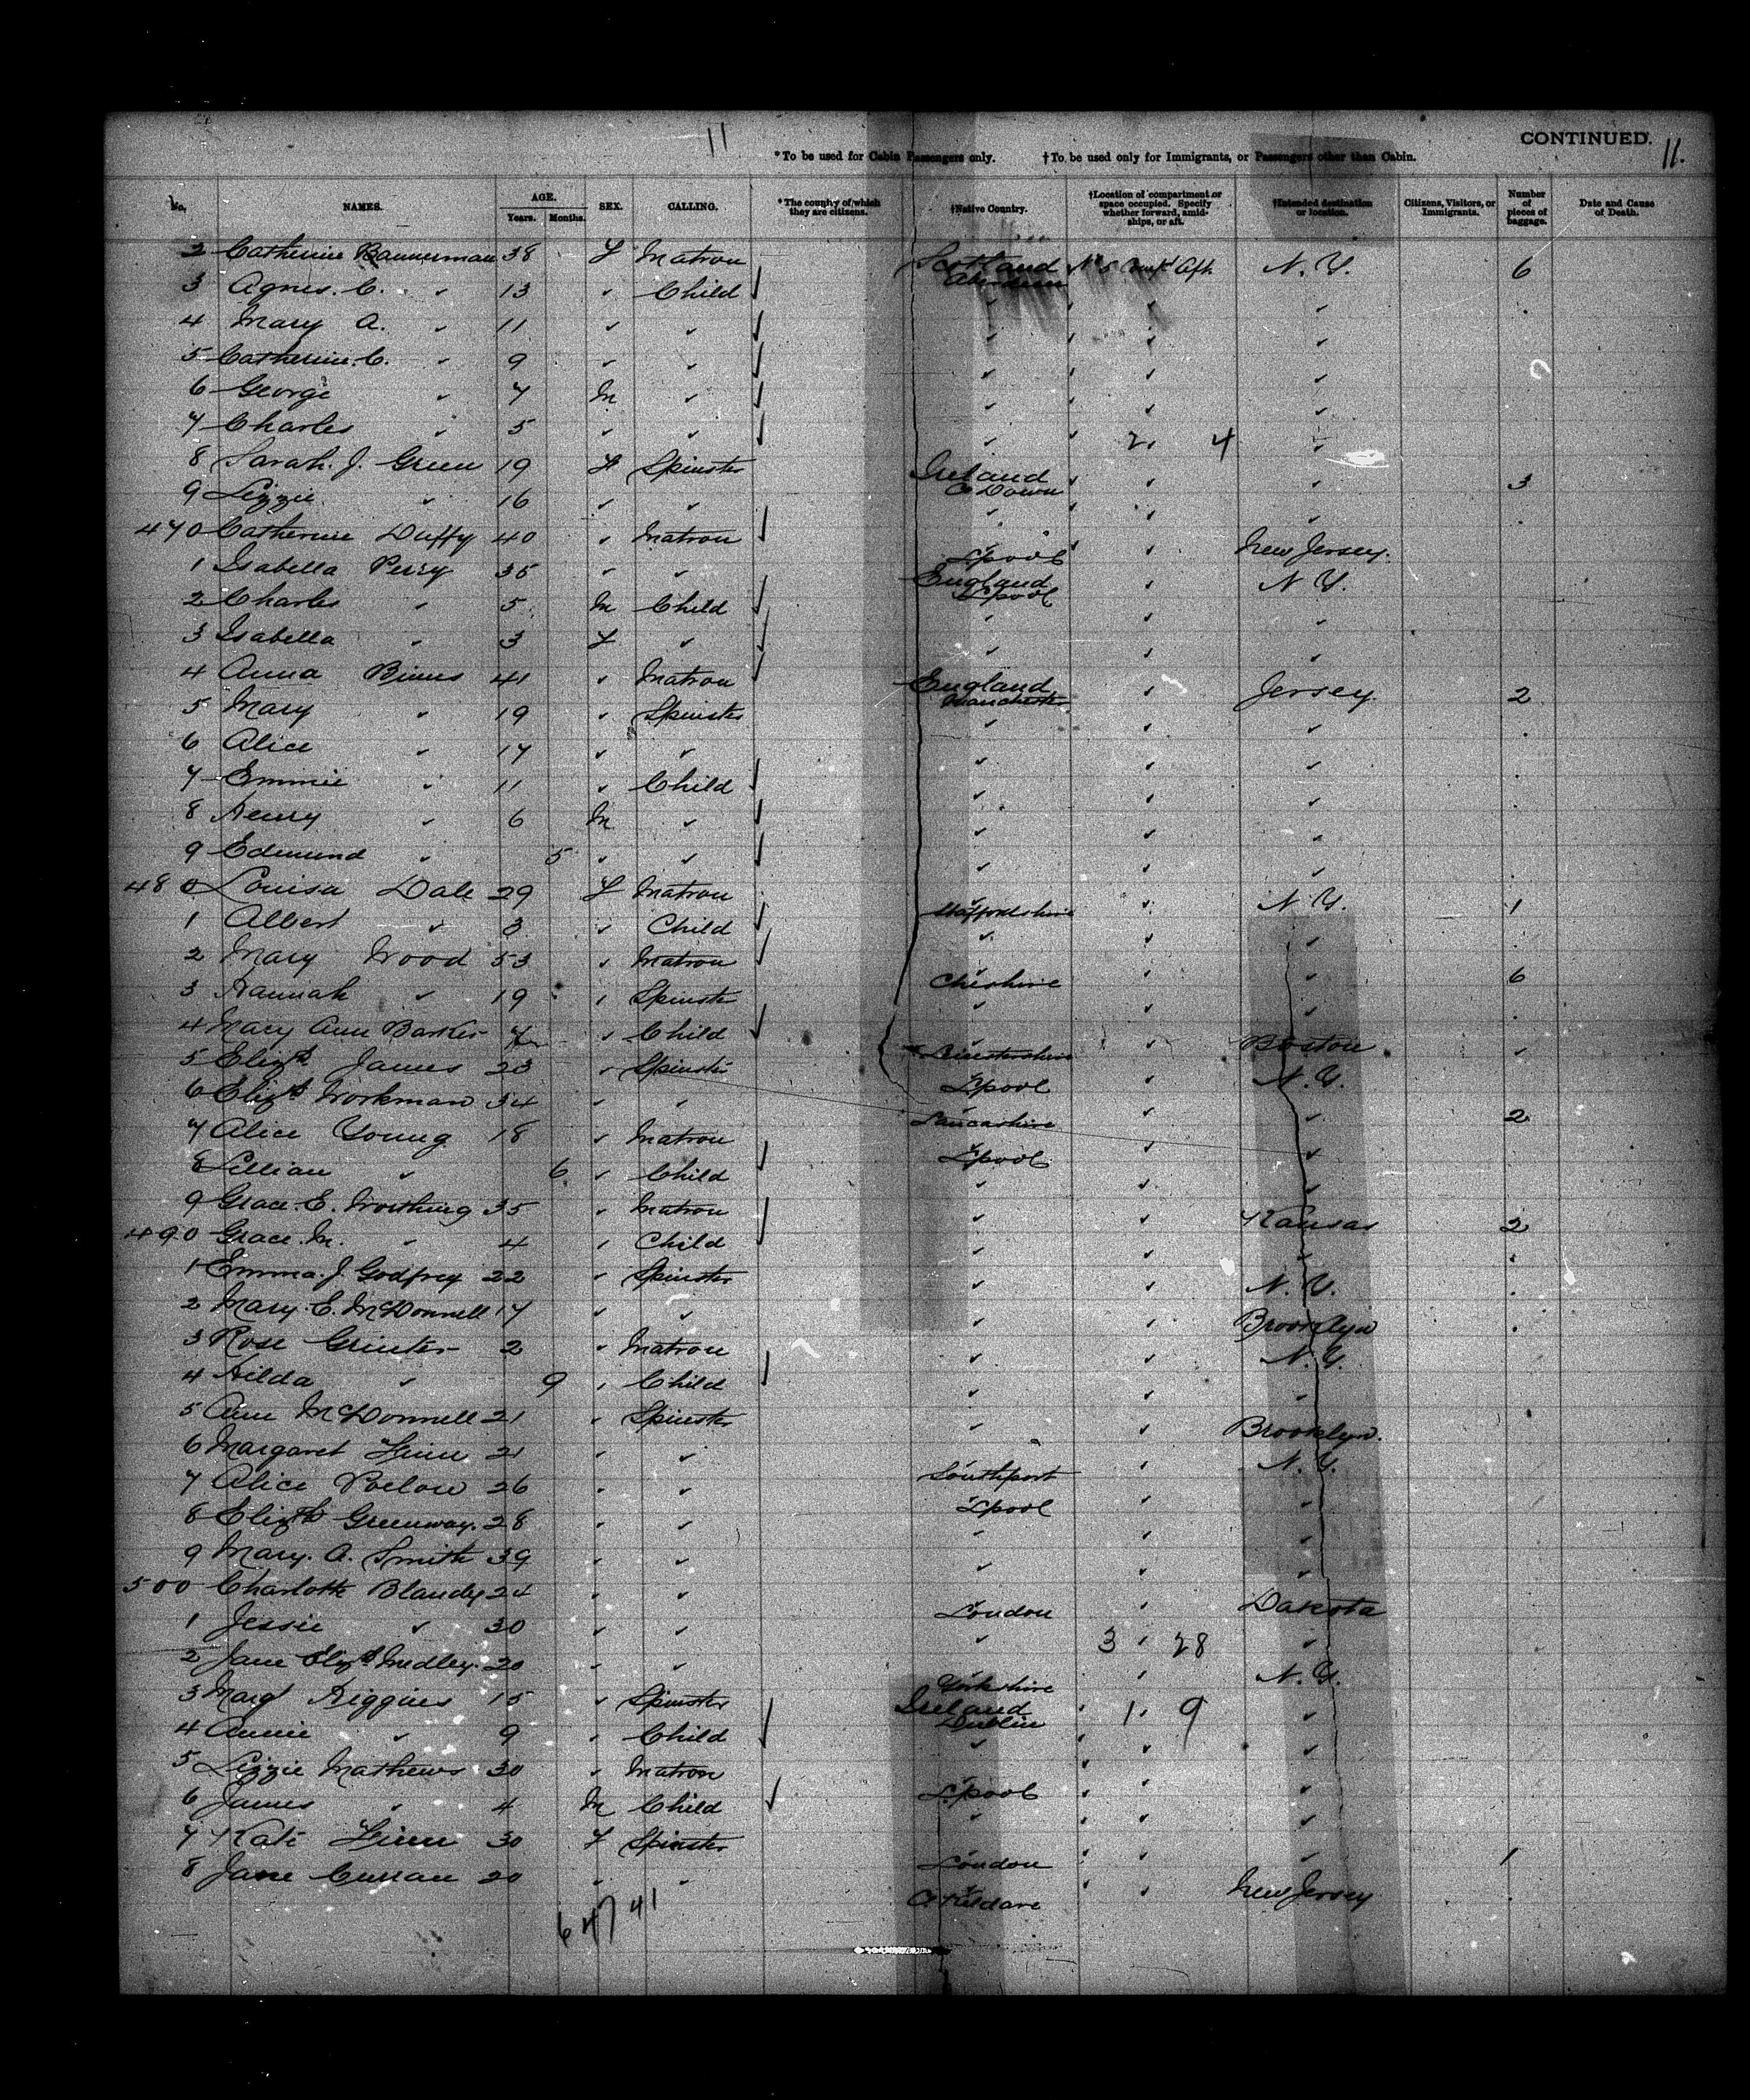 11
CONTINUED.
11.
*To be used for Cabin Passengers only. †To be used only for Immigrants, or Passengers other than Cabin.
No. NAMES. AGE. Years. Months. SEX. CALLING. *The country of which they are citizens. †Native Country. †Location of compartment or space occupied. Specify whether forward, amidships, or aft. †Intended destination or location. Citizens, Visitors, or Immigrants. Number of pieces of baggage. Date and Cause of Death.
2 Catherine Bannerman 38 F Matron Scotland Aberdeen Aft N.Y. 6
3 Agnes. C. " 13 " Child " " "
4 Mary A. " 11 " " " " "
5 Catherine. C. " 9 " " " " "
6 George " 7 M " " " "
7 Charles " 5 " " " 2. 4 "
8 Sarah. J. Green 19 F Spinster Ireland Co Down " " 3
9 Lizzie " 16 " " " " "
470 Catherine Duffy 40 " Matron L'pool " New Jersey.
1 Isabella Perry 35 " " England L'pool " N.Y.
2 Charles " 5 M Child " " "
3 Isabella " 3 F " " " "
4 Anna Binns 41 " Matron England Manchester " Jersey 2
5 Mary " 19 " Spinster " " "
6 Alice " 17 " " " " "
7 Emmie " 11 " Child " " "
8 Henry " 6 M " " " "
9 Edmund " 5 " " " " "
480 Louisa Dale 29 F Matron Staffordshire " N.Y. 1
1 Albert " 3 " Child " " "
2 Mary Wood 53 " Matron Cheshire " " 6
3 Hannah " 19 " Spinster " " "
4 Mary Ann Barker 7 " Child Leicestershire " Boston "
5 Elizth James 23 " Spinster L'pool " N.Y.
6 Elizth Workman 34 " " Lancashire " " 2
7 Alice Young 18 " Matron L'pool " "
8 Lillian " 6 " Child " " "
9 Grace. E. Worthing 35 " Matron " " Kansas 2
490 Grace. M. " 4 " Child " " "
1 Emma. J. Godfrey 22 " Spinster " " N.Y.
2 Mary. E. McDonnell 17 " " " " Brooklyn
3 Rose Grinter 2 " Matron " " N.Y.
4 Hilda " 9 " Child " " "
5 Ann McDonnell 21 " Spinster " " Brooklyn.
6 Margaret Finn 21 " " Southport " N.Y.
7 Alice 26 " " L'pool " "
8 Elizth Greenway. 28 " " " " "
9 Mary. A. Smith 39 " " " " "
500 Charlotte Blandy 24 " " London " Dakota
1 Jessie " 30 " " " 3 " 28 "
2 Jane Elizth Medley. 20 " " Yorkshire " N.Y.
3 Margt Higgins 15 " Spinster Ireland Dublin 1. 9 "
4 Annie " 9 " Child " " "
5 Lizzie Mathews 30 " Matron L'pool " "
6 James " 4 M Child " " "
7 Kate Finn 30 F Spinster London " " 1
8 Jane Curran 20 " " Co Kildare " New Jersey
6 47 41